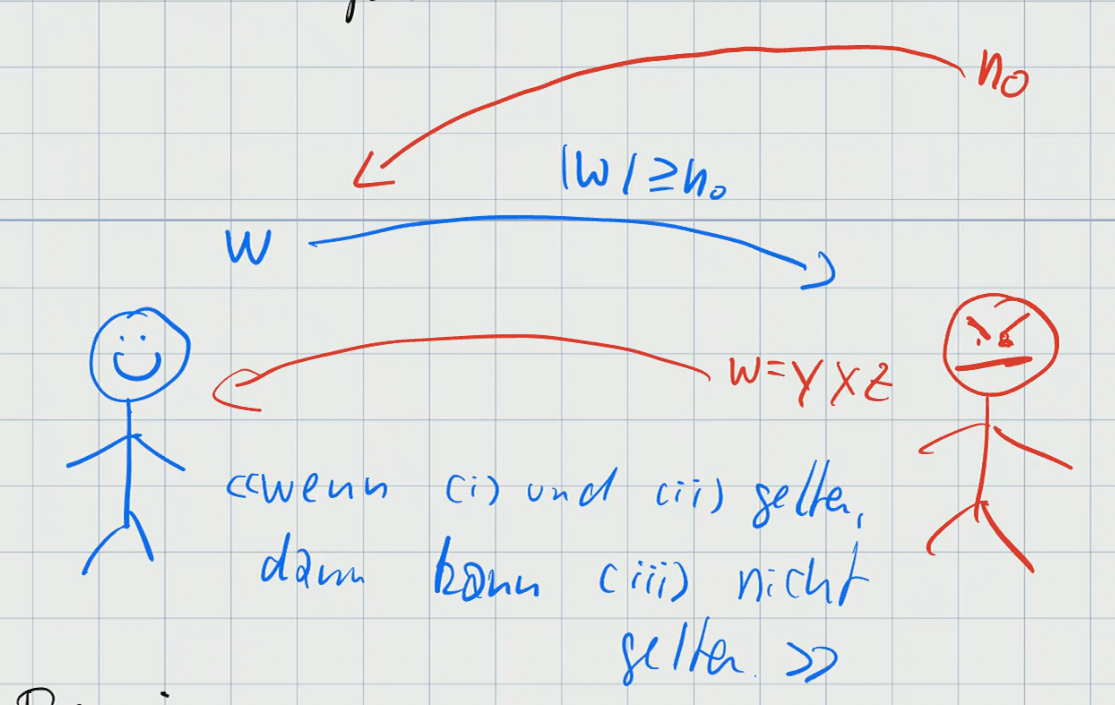 n₀
|W| ≥ n₀
W
W = Y X Z
«wenn (i) und (ii) gelten,
dann kann (iii) nicht
gelten.»